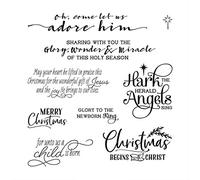 oh, come let us
adore him
SHARING WITH YOU THE
Glory, Wonder & Miracle
OF THIS HOLY SEASON
May your heart be lifted in praise this
Christmas for the wonderful gift of Jesus
and the joy He brings to our lives.
Hark THE
HERALD
Angels
SING
MERRY
Christmas
GLORY TO THE
NEWBORN King
for unto us a
child is born
Christmas
BEGINS with CHRIST